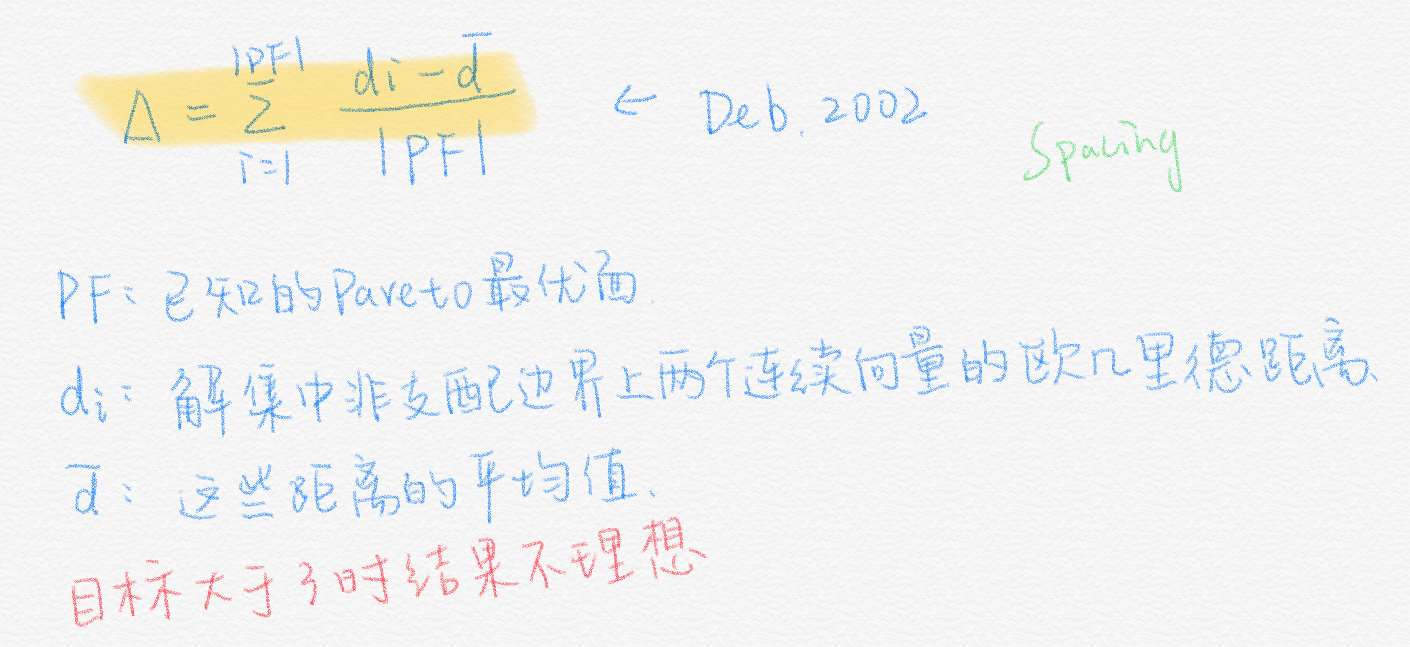 Δ = Σ_{i=1}^{|PF|} \frac{di - \bar{d}}{|PF|} ← Deb. 2002
Spacing
PF: 已知的Pareto最优面.
di: 解集中非支配边界上两个连续向量的欧几里德距离.
\bar{d}: 这些距离的平均值.
目标大于3时结果不理想